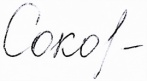 Сокол-